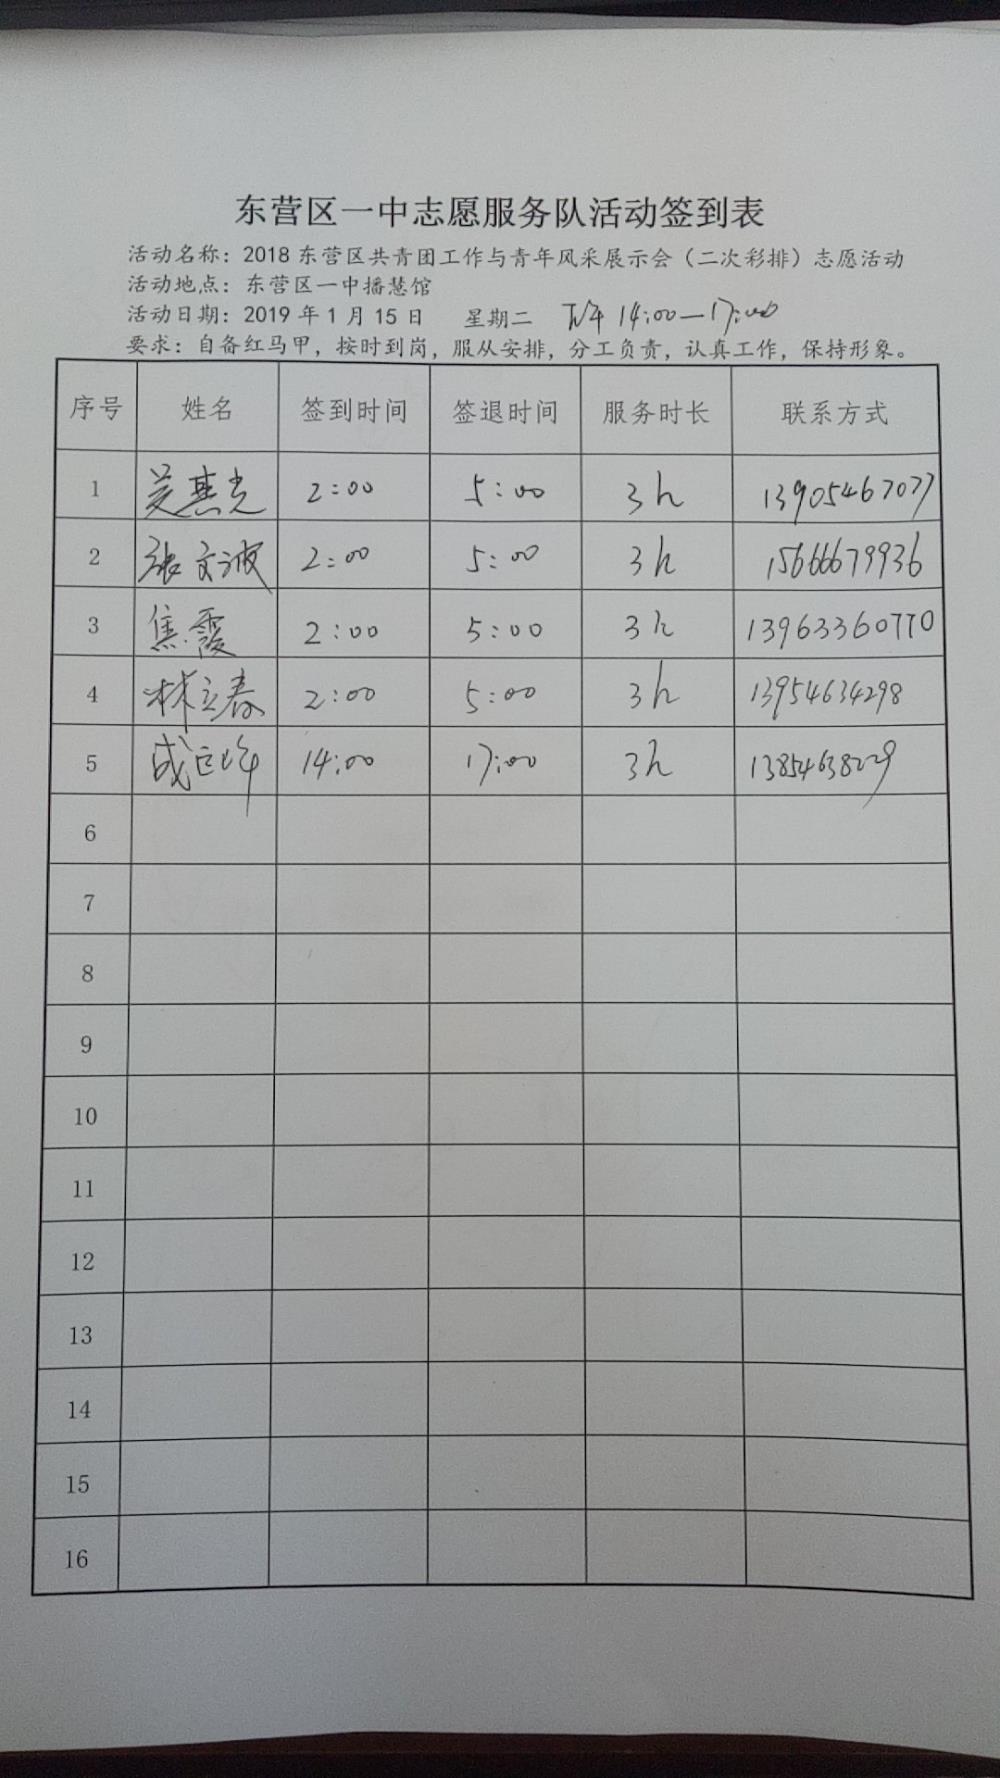 东营区一中志愿服务队活动签到表
活动名称：2018 东营区共青团工作与青年风采展示会（二次彩排）志愿活动
活动地点：东营区一中播慧馆
活动日期：2019 年 1 月 15 日 星期二 下午 14:00—17:00
要求：自备红马甲，按时到岗，服从安排，分工负责，认真工作，保持形象。
序号 姓名 签到时间 签退时间 服务时长 联系方式
1 2:00 5:00 3h 13905467077
2 张文波 2:00 5:00 3h 15666679936
3 焦霞 2:00 5:00 3h 13963360770
4 林立春 2:00 5:00 3h 13954634298
5 成巨峰 14:00 17:00 3h
6
7
8
9
10
11
12
13
14
15
16